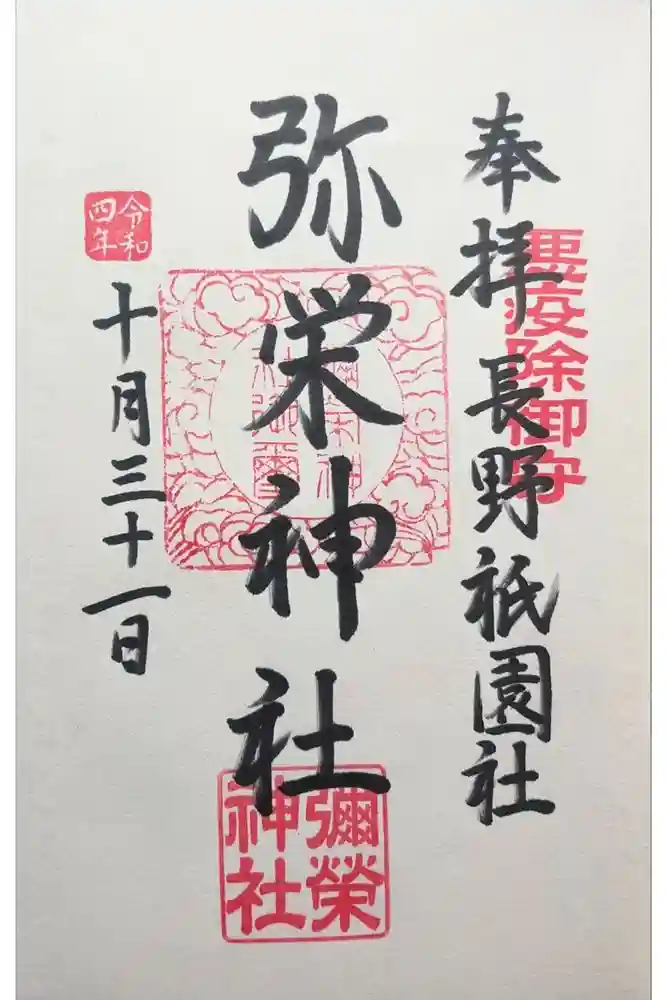 奉拝 長野祇園社
悪疫除御守
弥栄神社
彌榮
神社
令和
四年
十月三十一日